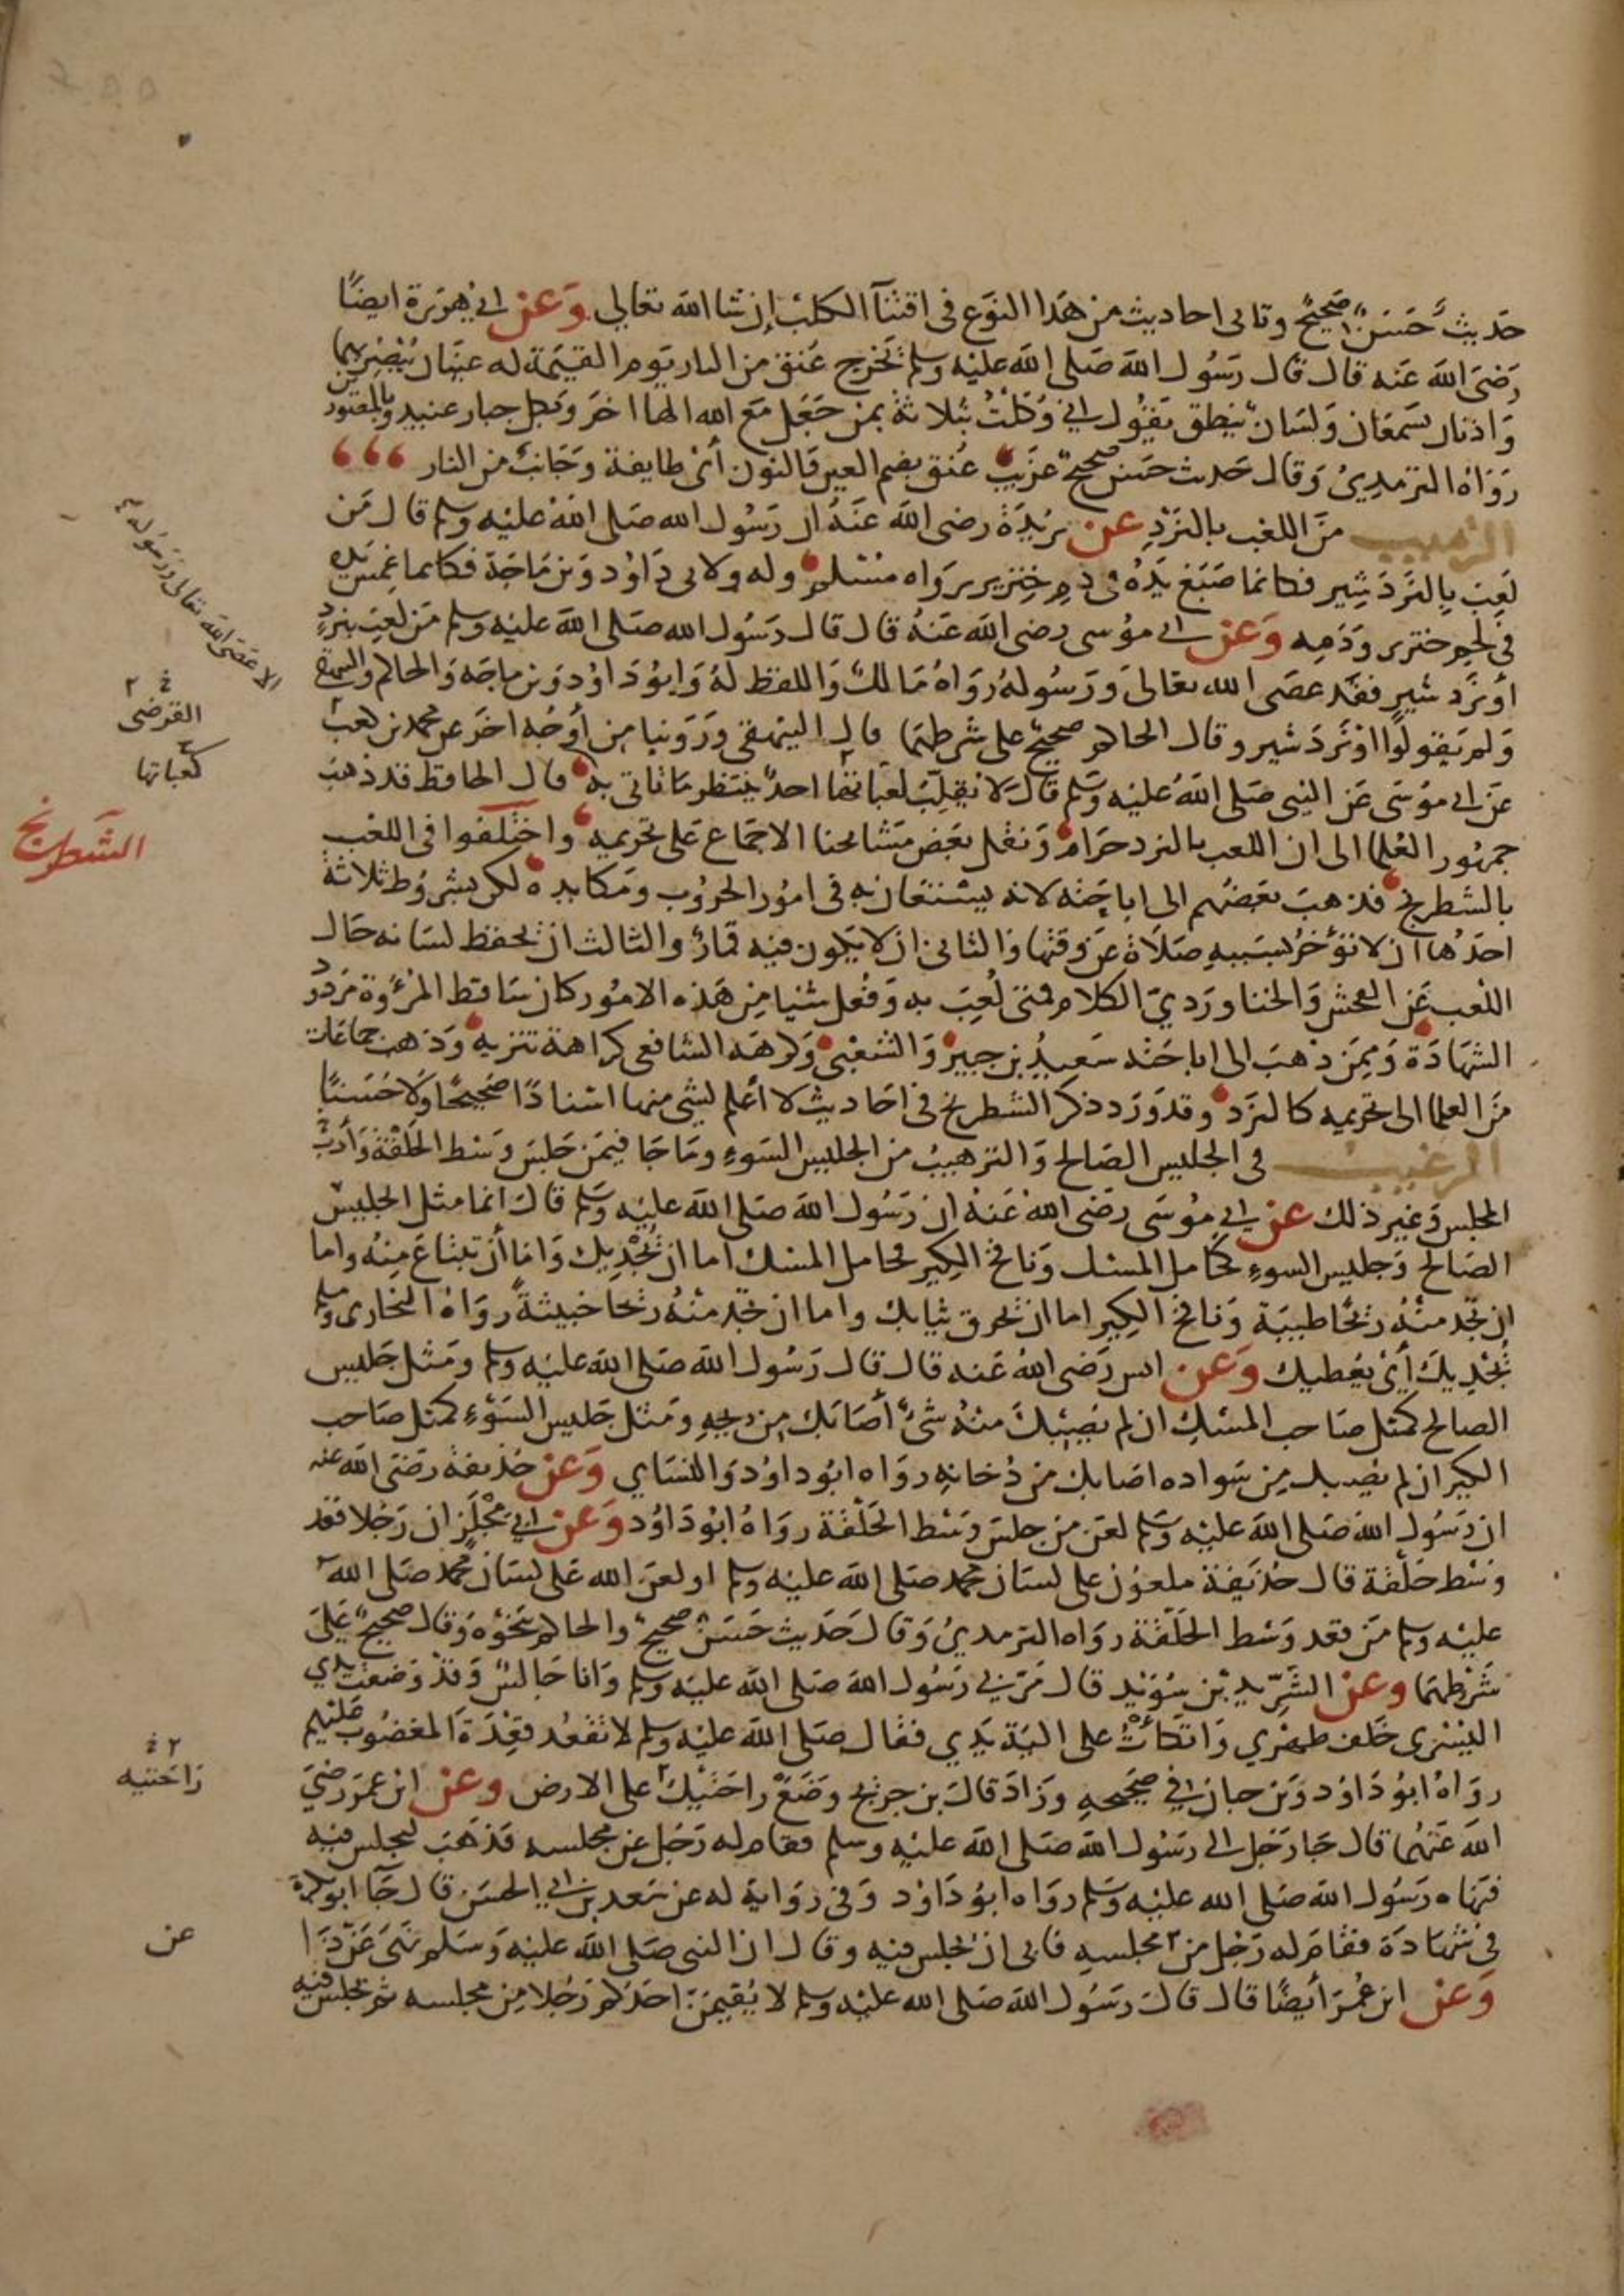 حديث حسن صحيح وتاتى احاديث من هذا النوع فى اقتنآ الكلب إن شا الله تعالى وعن ابي هريرة ايضًا
رضى الله عنه قال قال رسول الله صلى الله عليه وسلم تخرج عنق من النار يوم القيمة له عينان يبصر بهما
واذنان تسمعان ولسان ينطق يقول اني وكلت بثلاثة بمن جعل مع الله الها اخر وبكل جبار عنيد وبالمصورين
رواه الترمذي وقال حديث حسن صحيح غريب عنق بضم العين والنون أى طايفة وجانب من النار
الترهيب من اللعب بالنرد عن بريدة رضى الله عنه ان رسول الله صلى الله عليه وسلم قال من
لعب بالنرد شير فكانما صبغ يده فى دم خنزير رواه مسلم وله ولابى داود وبن ماجة فكانما غمس يده
فى لحم خنزير ودمه وعن ابي موسى رضى الله عنه قال قال رسول الله صلى الله عليه وسلم من لعب بنرد
أو نرد شير فقد عصى الله تعالى ورسوله رواه مالك واللفظ له وابو داود وبن ماجه والحاكم والبيهقى
ولم يقولوا او نرد شير وقال الحاكم صحيح على شرطهما قال البيهقى وروينا من أوجه اخر عن محمد بن كعب
عن ابى موسى عن النبى صلى الله عليه وسلم قال لا يقلب كعباتها احد ينتظر ما تاتى به قال الحافظ قد ذهب
جمهور العلما الى ان اللعب بالنرد حرام ونقل بعض مشايخنا الاجماع على تحريمه واختلفوا فى اللعب
بالشطرنج فذهب بعضهم الى اباحته لانه يستعان به فى امور الحروب ومكايده لكن بشروط ثلاثة
احدها ان لا تؤخر بسببه صلاة عن وقتها والثانى ان لا يكون فيه قمار والثالث ان يحفظ لسانه حال
اللعب عن الفحش والخنا وردي الكلام فمتى لعب به وفعل شيا من هذه الامور كان ساقط المرؤة مردود
الشهادة وممن ذهب الى اباحته سعيد بن جبير والشعبى وكرهه الشافعى كراهة تنزيه وذهب جماعات
من العلما الى تحريمه كالنرد وقد ورد ذكر الشطرنج فى احاديث لا أعلم لشى منها اسنادًا صحيحًا ولا حسنًا
الترغيب فى الجليس الصالح والترهيب من الجليس السوء وما جا فيمن جلس وسط الحلقة وأدب
المجلس وغير ذلك عن ابي موسى رضى الله عنه ان رسول الله صلى الله عليه وسلم قال انما مثل الجليس
الصالح وجليس السوء كحامل المسك ونافخ الكير فحامل المسك اما ان يحذيك واما أن تبتاع منه واما
ان تجد منه ريحًا طيبة ونافخ الكير اما ان يحرق ثيابك واما ان تجد منه ريحا خبيثة رواه البخارى ومسلم
يحذيك أى يعطيك وعن انس رضى الله عنه قال قال رسول الله صلى الله عليه وسلم ومثل جليس
الصالح كمثل صاحب المسك ان لم يصبك منه شىء أصابك من ريحه ومثل جليس السوء كمثل صاحب
الكير ان لم يصبك من سواده اصابك من دخانه رواه ابو داود والنساي وعن حذيفة رضى الله عنه
ان رسول الله صلى الله عليه وسلم لعن من جلس وسط الحلقة رواه ابو داود وعن ابي مجلز ان رجلا قعد
وسط حلقة قال حذيفة ملعون على لسان محمد صلى الله عليه وسلم او لعن الله على لسان محمد صلى الله
عليه وسلم من قعد وسط الحلقة رواه الترمذي وقال حديث حسن صحيح والحاكم بنحوه وقال صحيح على
شرطهما وعن الشريد بن سويد قال مر بي رسول الله صلى الله عليه وسلم وانا جالس وقد وضعت يدي
اليسرى خلف ظهري واتكأت على الية يدي فقال صلى الله عليه وسلم لا تقعد قعدة المغضوب عليهم
رواه ابو داود وبن حبان في صحيحه وزاد قال بن جريج وضع راحتيك على الارض وعن ابن عمر رضى
الله عنهما قال جا رجل الى رسول الله صلى الله عليه وسلم فقام له رجل عن مجلسه فذهب ليجلس فيه
فنهاه رسول الله صلى الله عليه وسلم رواه ابو داود وفى رواية له عن سعيد بن ابي الحسن قال جآ ابو بكرة
فى شهادة فقام له رجل من مجلسه فابى ان يجلس فيه وقال ان النبى صلى الله عليه وسلم نهى عن ذا
وعن ابن عمر أيضًا قال قال رسول الله صلى الله عليه وسلم لا يقيمن احدكم رجلا من مجلسه ثم يجلس فيه
الا عصى الله تعالى ورسوله
القرضى
كعباتها
الشطرنج
راحتيه
عن